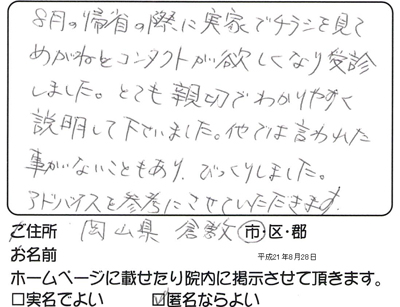 8月の帰省の際に実家でチラシを見て
めがねとコンタクトが欲しくなり受診
しました。とても親切でわかりやすく
説明して下さいました。他では言われた
事がないこともあり、びっくりしました。
アドバイスを参考にさせていただきます。
ご住所 岡山県 倉敷 市・区・郡
お名前 平成21年8月28日
ホームページに載せたり院内に掲示させて頂きます。
□実名でよい ☑匿名ならよい